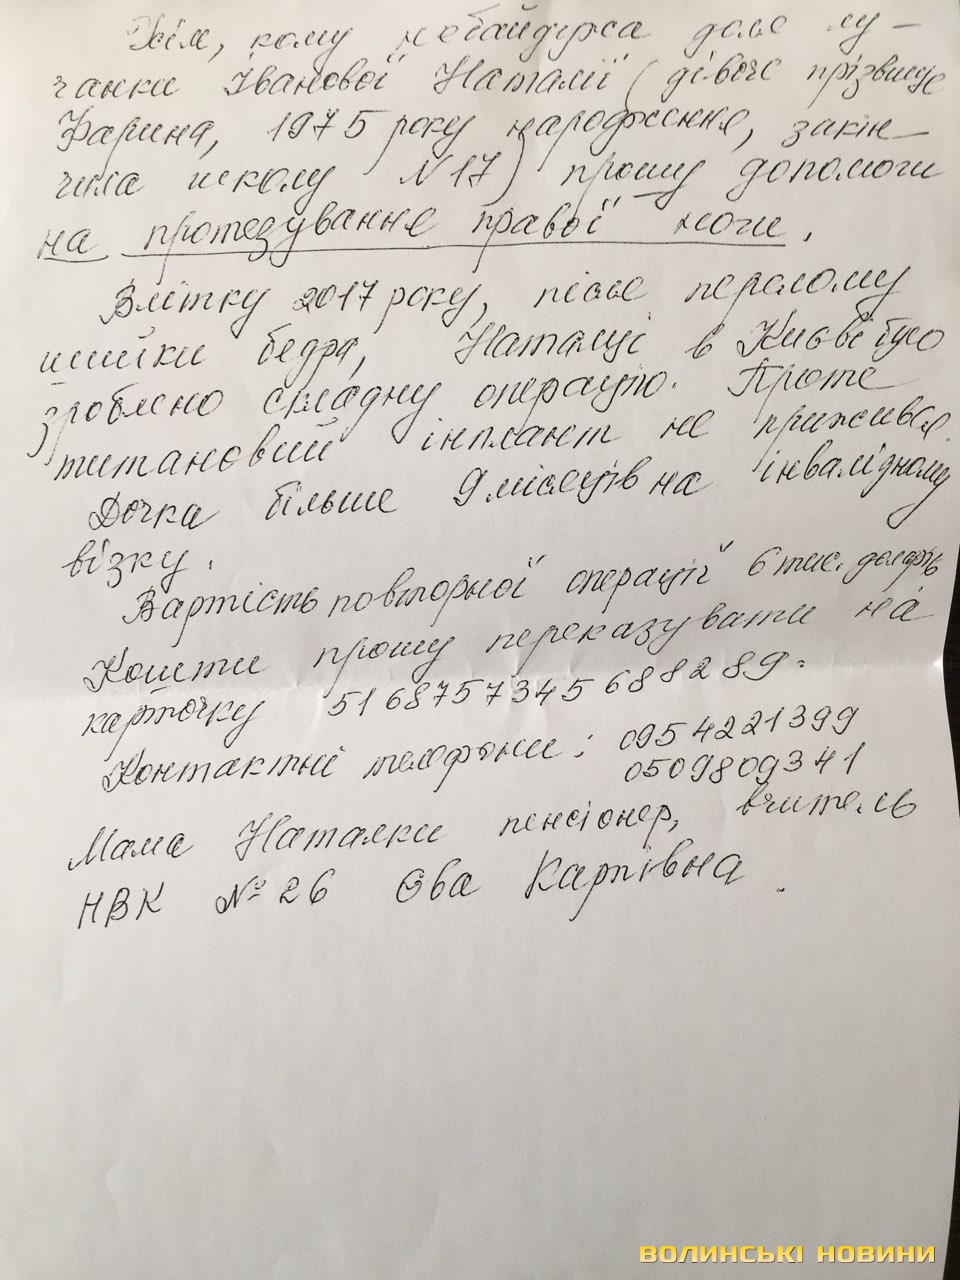 Усім, кому небайдужа доля лу-
чанки Іванової Наталії (дівоче прізвище
Фарина, 1975 року народження, закін-
чила школу №17) прошу допомоги
на протезування правої ноги.
Влітку 2017 року, після перелому
шийки бедра, Наталці в Києві було
зроблено складну операцію. Проте
титановий інплант не приживає.
Дочка більше 9 місяців на інвалідному
візку.
Вартість повторної операції 6 тис. доларів
Кошти прошу переказувати на
карточку 5168757345688289.
Контактні телефони: 0954221399
0509809341
Мама Наталки пенсіонер, вчитель
НВК №26 Єва Карпівна.
ВОЛИНСЬКІ НОВИНИ